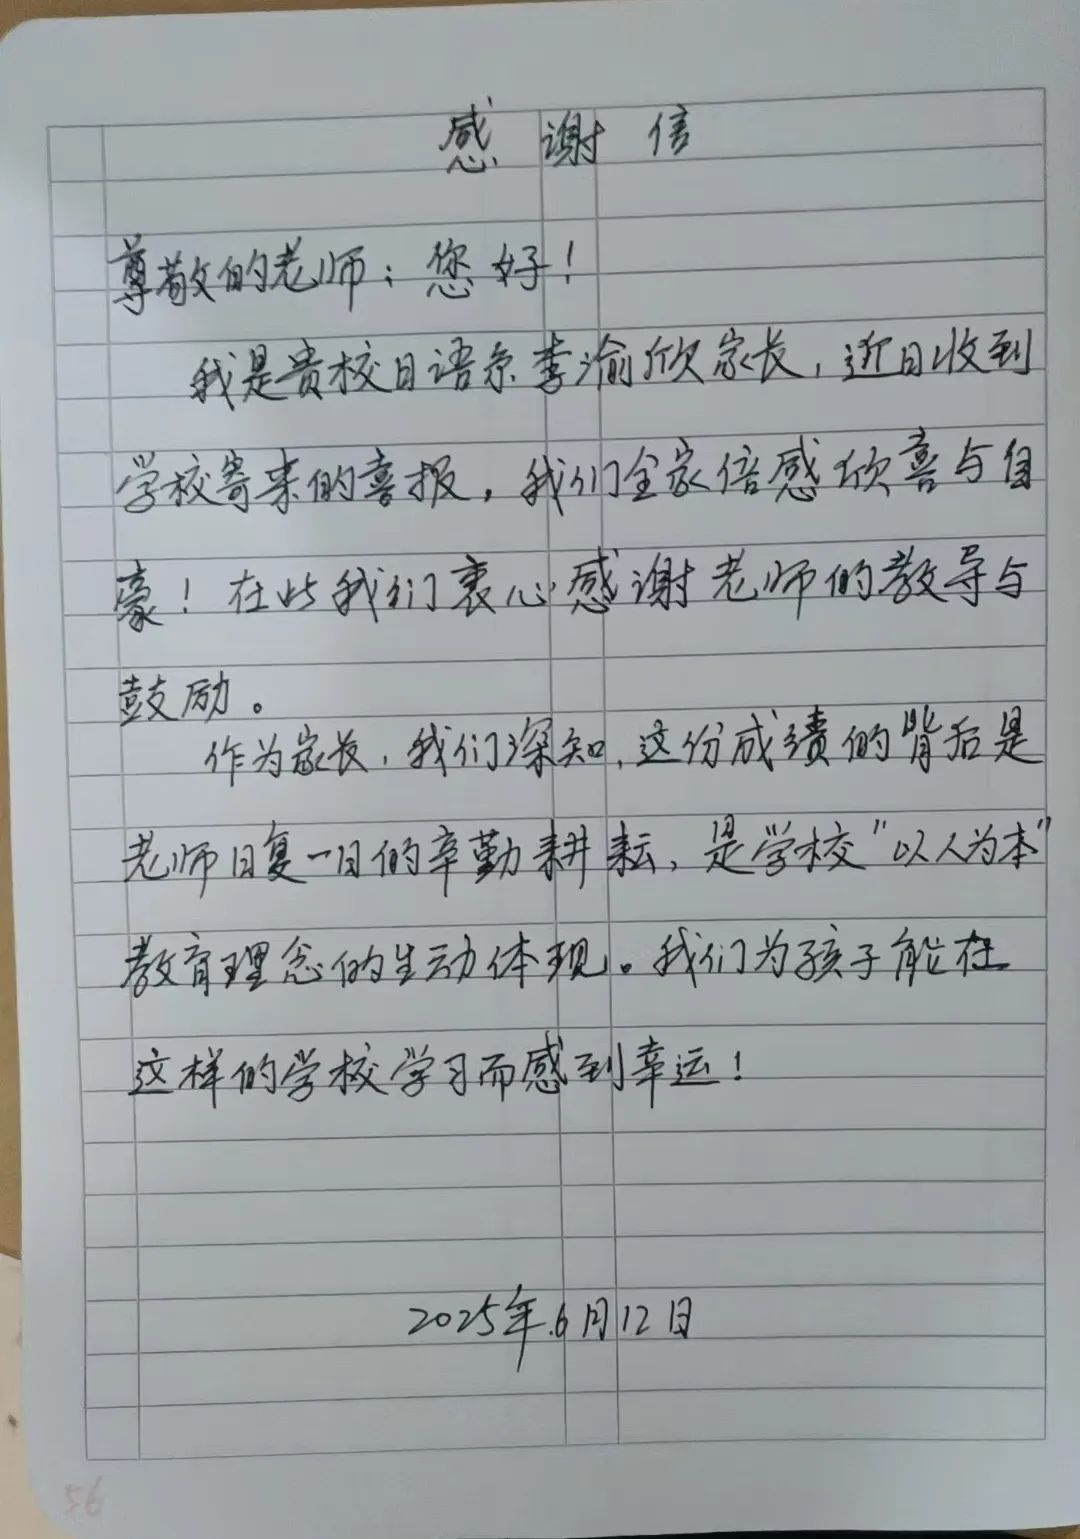 感谢信
尊敬的老师：您好！
我是贵校日语系李渝欣家长，近日收到
学校寄来的喜报，我们全家倍感欣喜与自
豪！在此我们衷心感谢老师的教导与
鼓励。
作为家长，我们深知，这份成绩的背后是
老师日复一日的辛勤耕耘，是学校"以人为本"
教育理念的生动体现。我们为孩子能在
这样的学校学习而感到幸运！
2025年.6月12日
56